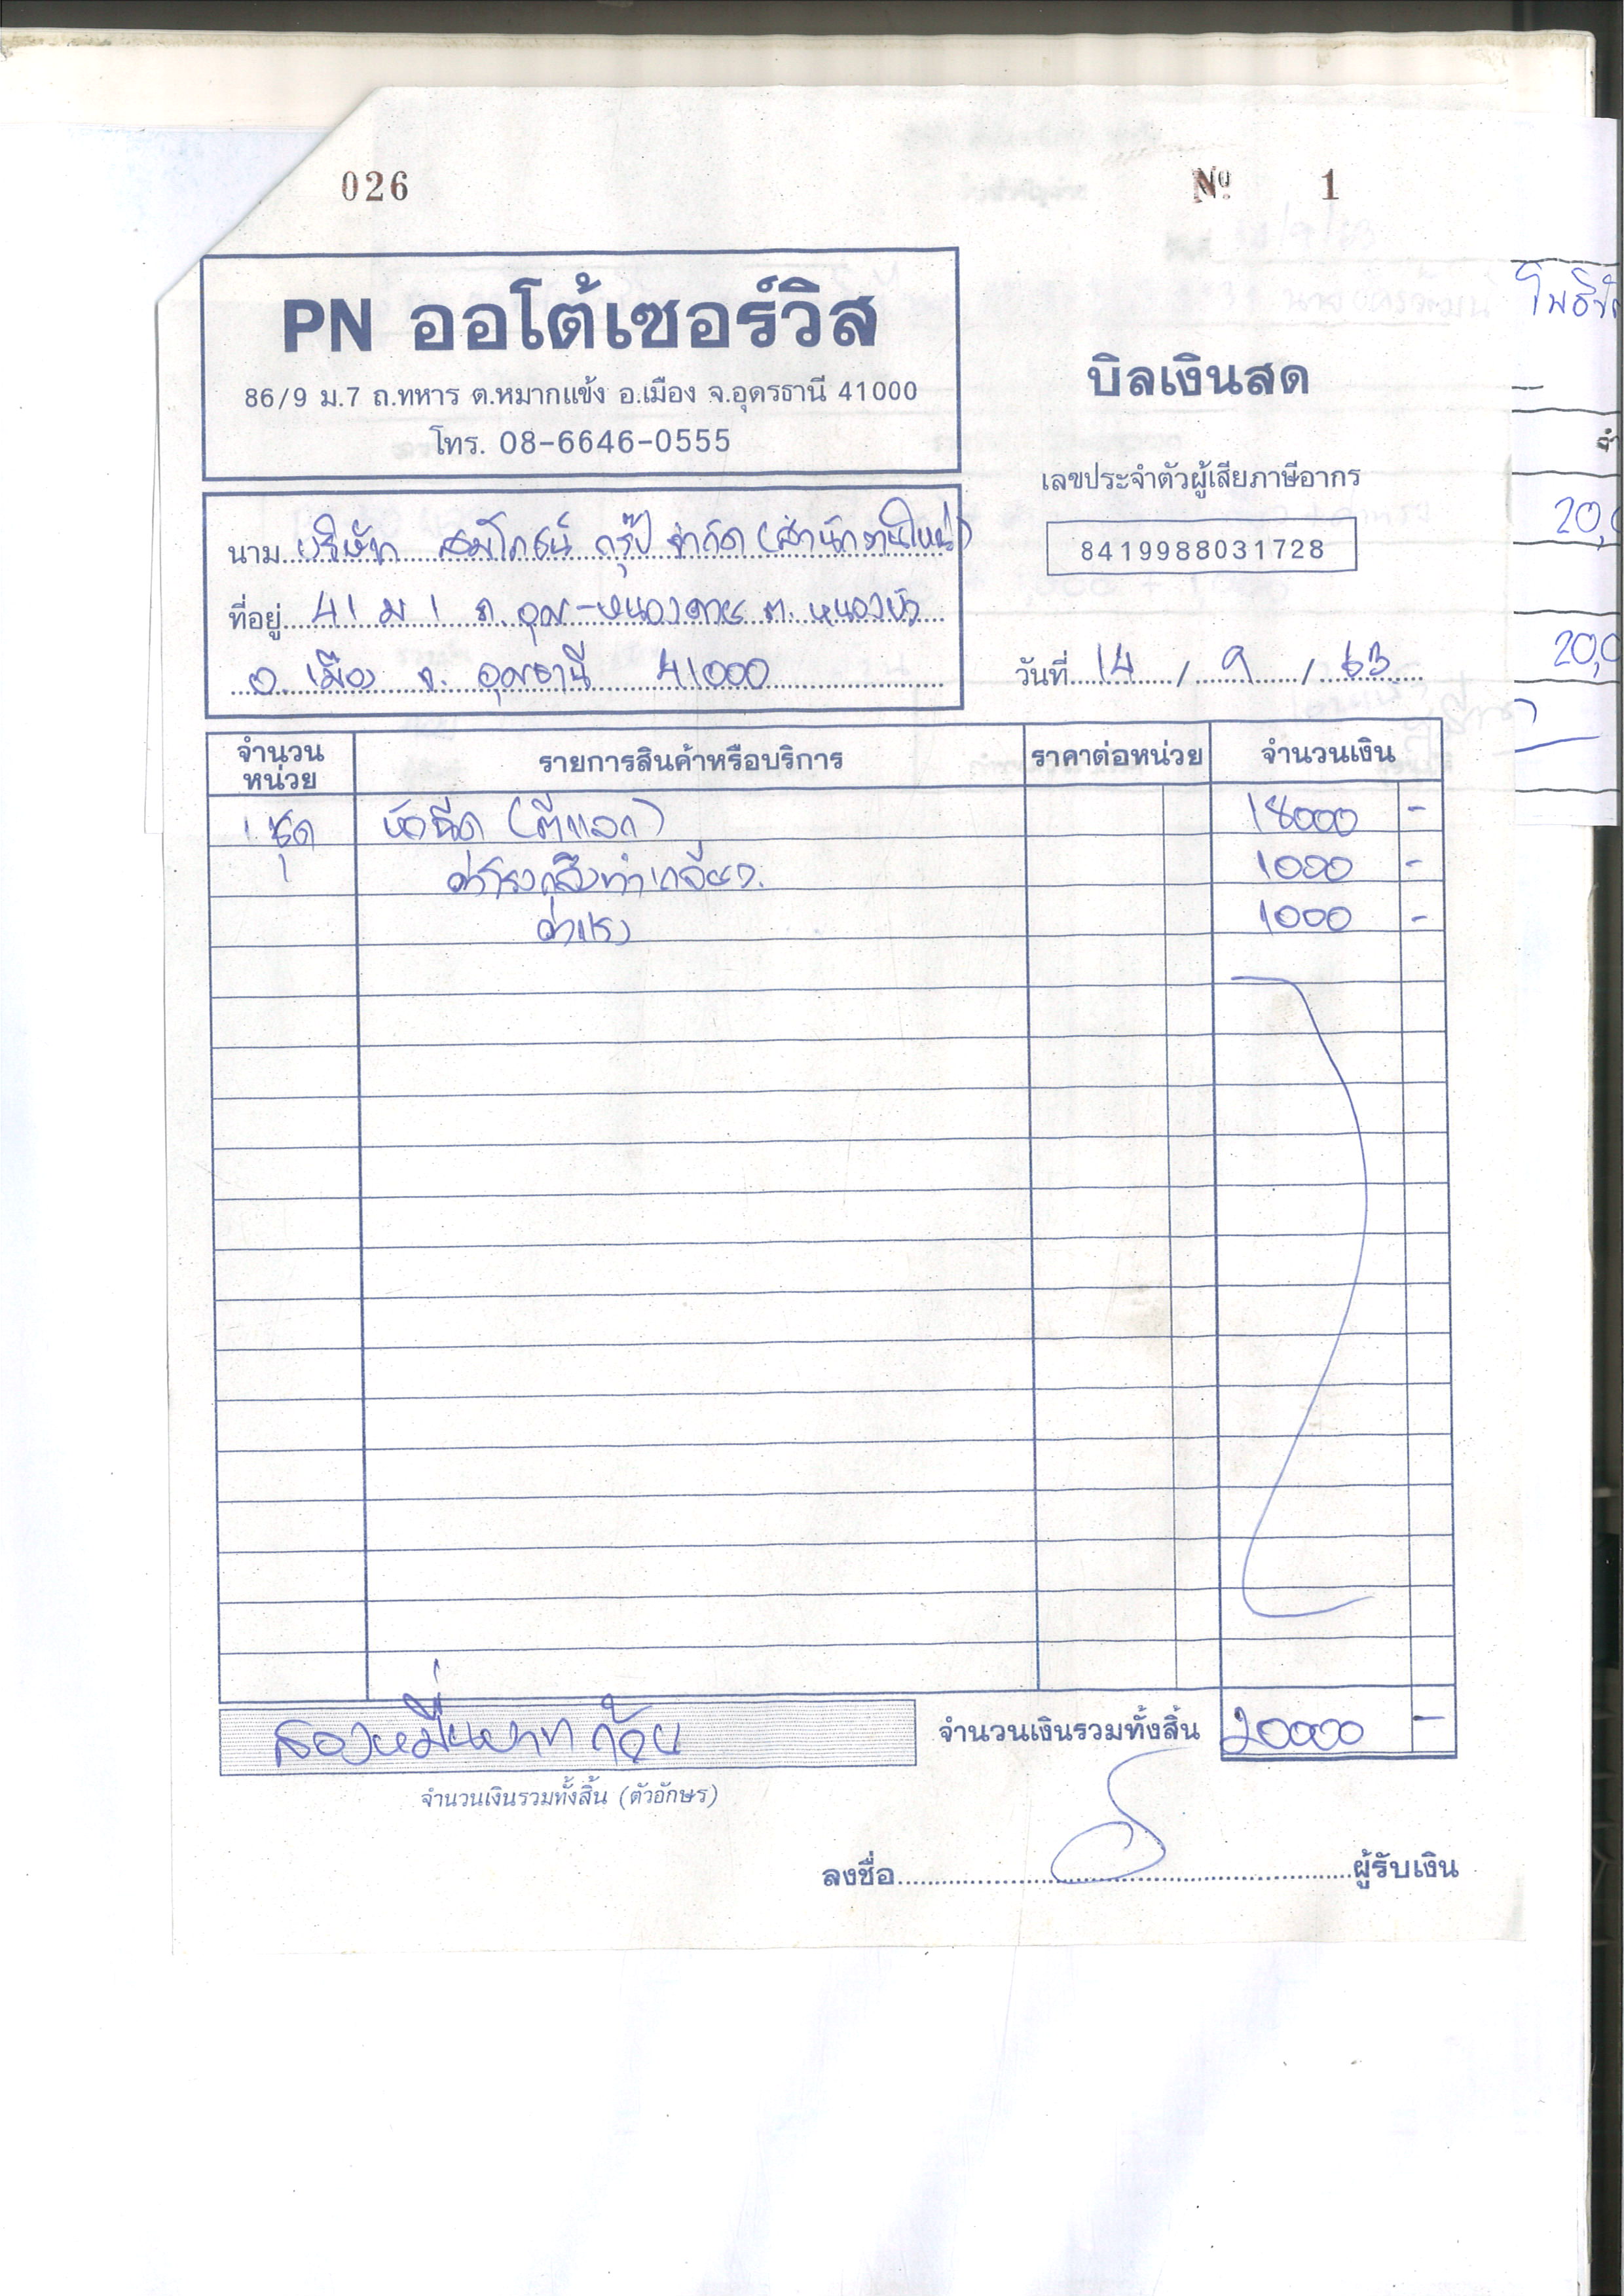 026
Nº 1
PN ออโต้เซอร์วิส
86/9 ม.7 ถ.ทหาร ต.หมากแข้ง อ.เมือง จ.อุดรธานี 41000
โทร. 08-6646-0555
บิลเงินสด
เลขประจำตัวผู้เสียภาษีอากร
8419988031728
นาม บริษัท สมโภชน์ กรุ๊ป จำกัด (สำนักงานใหญ่)
ที่อยู่ 41 ม 1 ถ. อุดร-หนองคาย ต. หนองบัว
อ. เมือง จ. อุดรธานี 41000
วันที่ 14 / 9 / 63
จำนวนหน่วย รายการสินค้าหรือบริการ ราคาต่อหน่วย จำนวนเงิน
1 ชุด หัวฉีด (ตีแลก) 18000 -
ค่าโรงกลึงทำเกลียว. 1000 -
ค่าแรง 1000 -
สองหมื่นบาทถ้วน
จำนวนเงินรวมทั้งสิ้น 20000 -
จำนวนเงินรวมทั้งสิ้น (ตัวอักษร)
ลงชื่อ ผู้รับเงิน